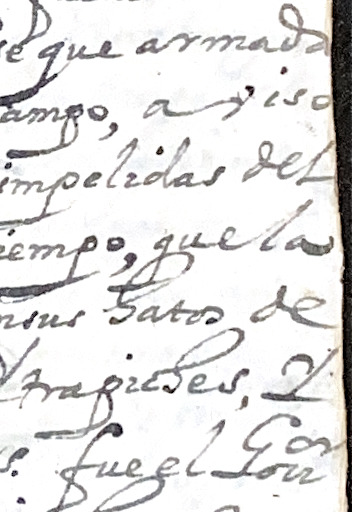 se que armada
ampo, aviso
impelidas del
iempo, que la
nsus hatos de
trapiches, Y
s. fue el Gov